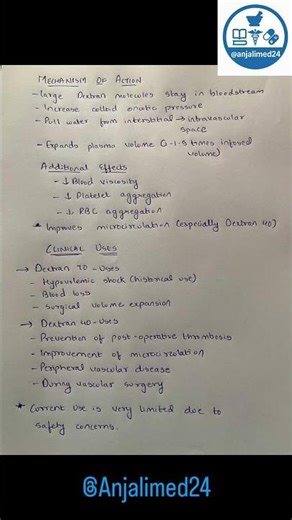 @anjalimed24
MECHANISM OF ACTION
- Large Dextran molecules stay in bloodstream
- Increase colloid oncotic pressure
- Pull water from interstitial → intravascular
space
- Expands plasma volume (1-1.5 times infused
volume)
Additional Effects
- ↓ Blood viscosity
- ↓ Platelet aggregation
- ↓ RBC aggregation
* Improves microcirculation (especially Dextran 40)
CLINICAL USES
→ Dextran 70 - Uses
- Hypovolemic shock (historical use)
- Blood loss
- Surgical volume expansion
→ Dextran 40 - Uses
- Prevention of post-operative thrombosis
- Improvement of microcirculation
- Peripheral vascular disease
- During vascular surgery
* Current use is very limited due to
safety concerns.
@Anjalimed24